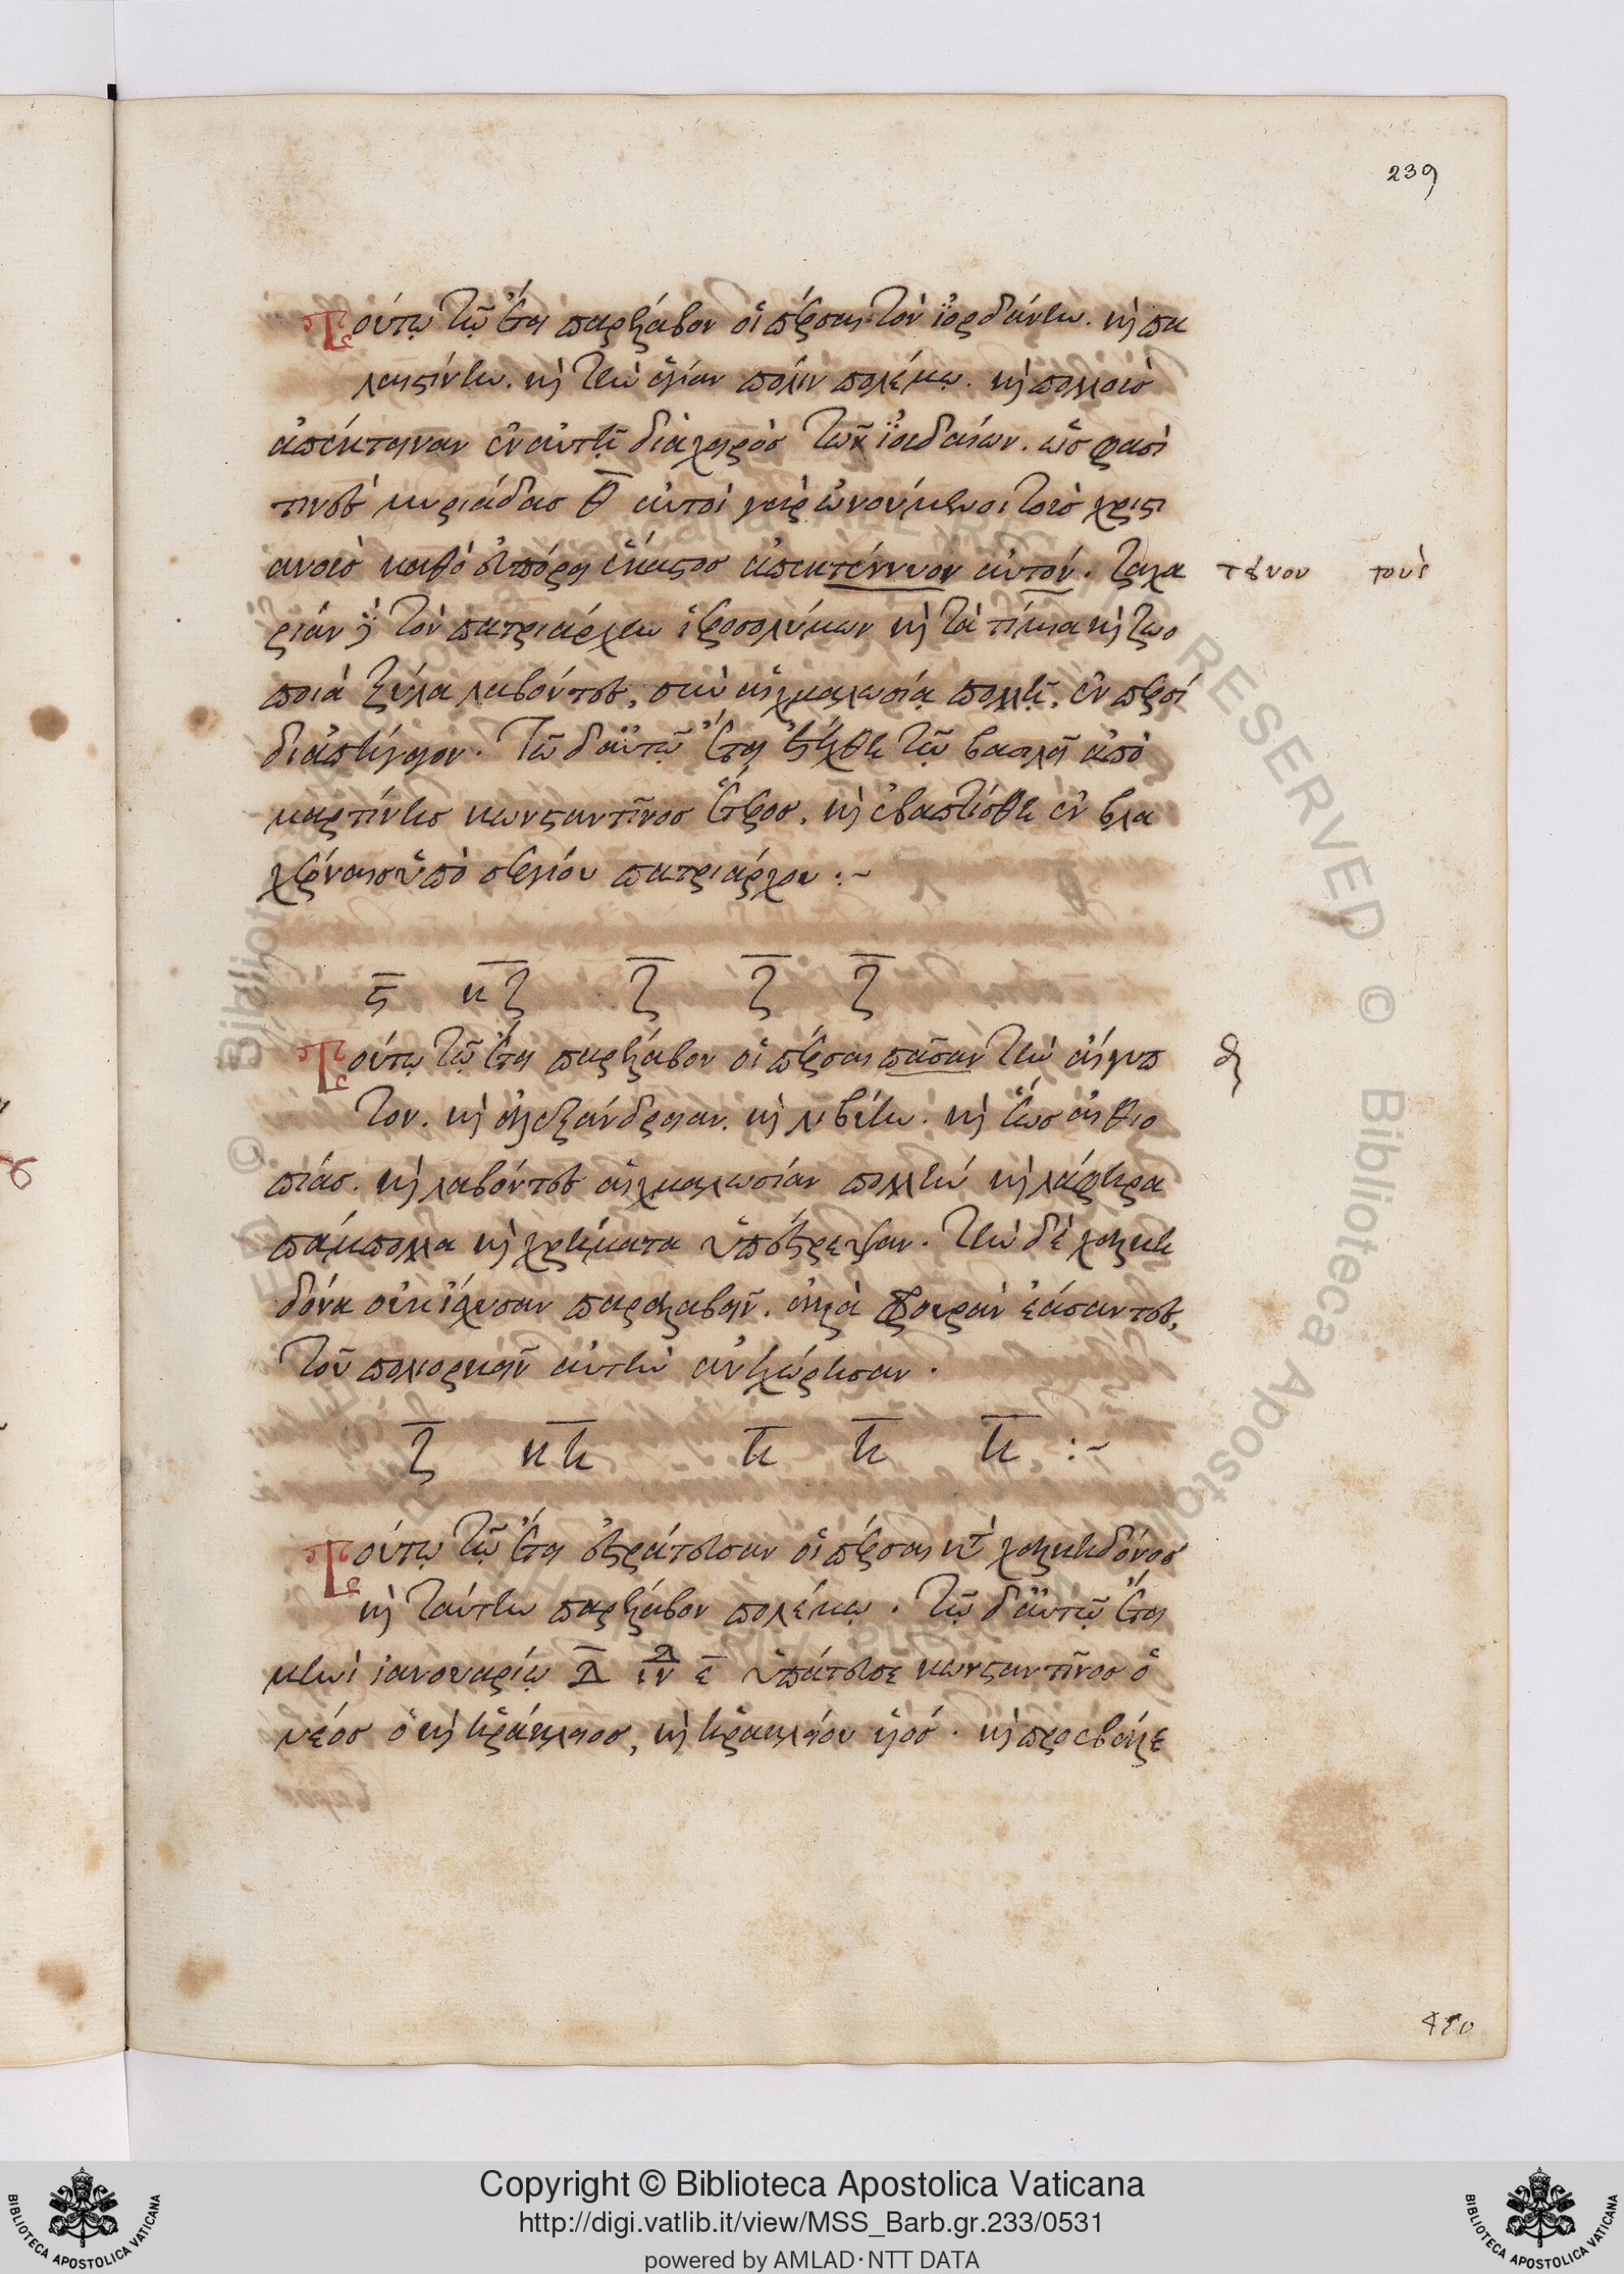 239
Τούτῳ τῷ ἔτει παρέλαβον οἱ πέρσαι τὸν ἰορδάνην. καὶ πα
λαιστίνην. καὶ τὴν ἁγίαν πόλιν πολέμῳ. καὶ πολλοὺς
ἀπέκτειναν ἐν αὐτῇ διὰ χειρὸς τῶν ἰουδαίων. ὥς φασί
τινες μυριάδας θ αὐτοὶ γὰρ ὠνούμενοι τοὺς χριστι
ανοὺς καθὸ εὐπόρει ἕκαστος ἀπεκτέννυον αὐτόν. ζαχα
τένου τοὺς
ρίαν δὲ τὸν πατριάρχην ἱεροσολύμων καὶ τὰ τίμια καὶ ζωο
ποιὰ ξύλα λαβόντες, σὺν αἰχμαλωσίᾳ πολλῇ, ἐν περσί
δι ἀπήγαγον. Τῷ δ' αὐτῷ ἔτει ἐτέχθη τῷ βασιλεῖ ἀπὸ
μαρτίνης κωνσταντῖνος ἕτερος. καὶ ἐβαπτίσθη ἐν βλα
χέρναις ὑπὸ σεργίου πατριάρχου :~
ϛ κζ ζ ζ ζ
Τούτῳ τῷ ἔτει παρέλαβον οἱ πέρσαι πᾶσαν τὴν αἴγυπ
τον. καὶ ἀλεξάνδρειαν. καὶ λιβύην. καὶ ἕως αἰθιο
πίας. καὶ λαβόντες αἰχμαλωσίαν πολλὴν καὶ λάφυρα
πάμπολλα καὶ χρήματα ὑπέστρεψαν. τὴν δὲ χαλκη
δόνα οὐκ ἴσχυσαν παραλαβεῖν. ἀλλὰ φρουρὰν ἐάσαντες,
τοῦ πολιορκεῖν αὐτὴν ἀνεχώρησαν.
ζ κη η η η :~
Τούτῳ τῷ ἔτει ἐστράτευσαν οἱ πέρσαι κατὰ χαλκηδόνος
καὶ ταύτην παρέλαβον πολέμῳ. τῷ δ' αὐτῷ ἔτει
μηνὶ ἰανουαρίῳ α ἰνδ ε ὑπάτευσε κωνσταντῖνος ὁ
νέος ὁ καὶ ἡράκλειος, καὶ ἡρακλείου υἱός. καὶ προεβάλε
Copyright © Biblioteca Apostolica Vaticana
http://digi.vatlib.it/view/MSS_Barb.gr.233/0531
powered by AMLAD·NTT DATA
BIBLIOTECA APOSTOLICA VATICANA
BIBLIOTECA APOSTOLICA VATICANA